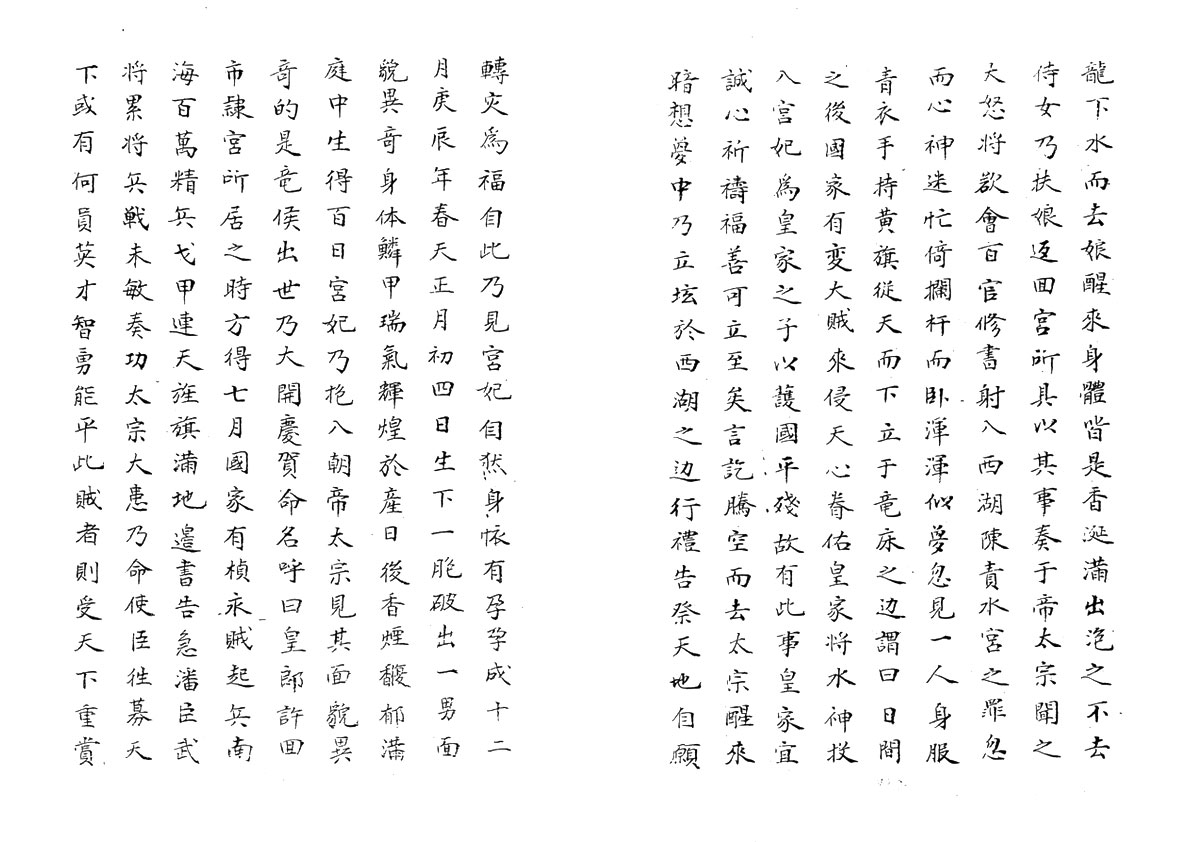 龍下水而去娘醒來身體皆是香涎滿出沱之不去
侍女乃扶娘返回宮所具以其事奏于帝太宗聞之
大怒將欲會百官修書射入西湖陳責水宮之罪忽
而心神迷忙倚攔杆而卧渾渾似夢忽見一人身服
青衣手持黄旗從天而下立于竜床之边謂曰日間
之後國家有変大賊來侵天心眷佑皇家将水神投
入宮妃爲皇家之子以護國平殘故有此事皇家宜
誠心祈禱福善可立至矣言訖騰空而去太宗醒來
暗想夢中乃立坛於西湖之边行禮告祭天地自願
轉灾爲福自此乃見宮妃自然身怀有孕孕成十二
月庚辰年春天正月初四日生下一胞破出一男面
貌異奇身体鱗甲瑞氣輝煌於產日後香煙馥郁滿
庭中生得百日宮妃乃抱入朝帝太宗見其面貌異
奇的是竜侯出世乃大開慶賀命名呼曰皇郎許回
市隷宮所居之時方得七月國家有楨永賊起兵南
海百萬精兵戈甲連天旌旗滿地邉書告急潘臣武
将累将兵戦未敏奏功太宗大患乃命使臣徃募天
下或有何員英才智勇能平此賊者則受天下重賞